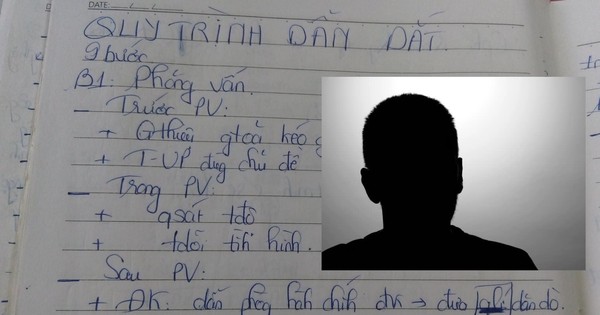 DATE:
QUY TRÌNH DẪN DẮT.
9 bước
B1: Phỏng vấn.
— Trước PV:
+ Gthiệu gtcả kéo
+ T-UP đúng chủ đề
— Trong PV:
+ qsát tđộ
+ tdõi tình hình.
— Sau PV:
+ ĐK: dẫn phòng hành chính đk → đưa dặn dò.